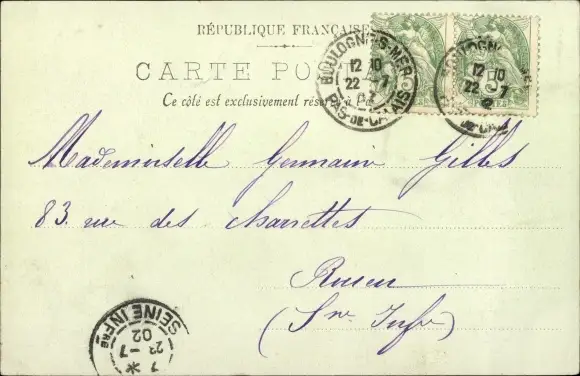 RÉPUBLIQUE FRANÇAISE
CARTE POS
Ce côté est exclusivement réservé à
BOULOGNE-S-MER
12 10
22 -7
02
PAS-DE-CALAIS
BOULOGN
12 10
22 -7
Mademoiselle Germaine Gilles
83. rue des Charrettes
Rouen
(Sne Infre)
SEINE INFRE
7
23 -7
02